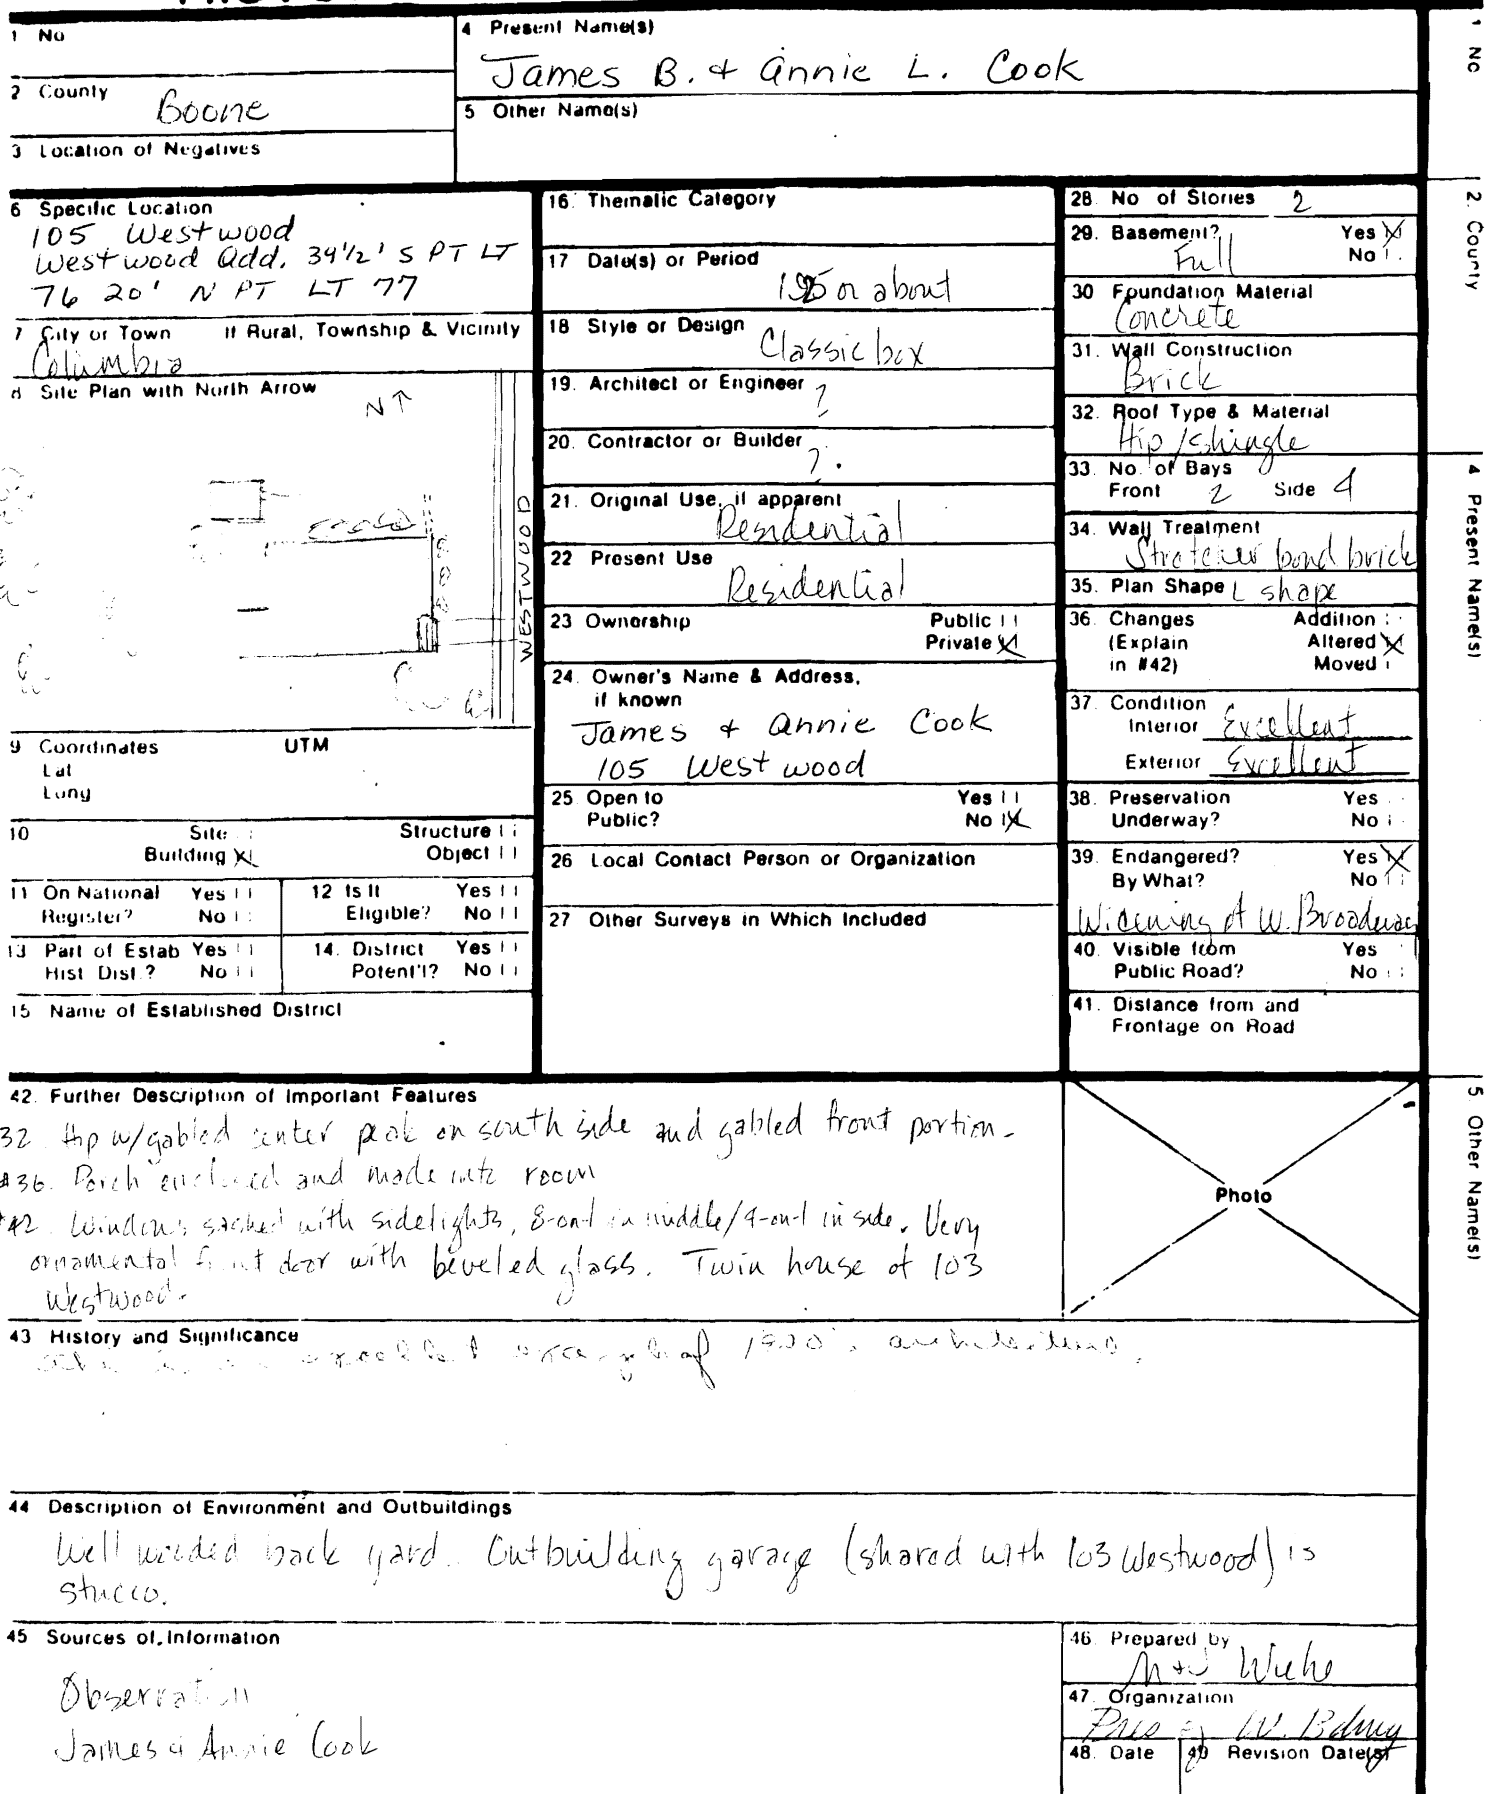 1 No
4 Present Name(s)
James B. + Annie L. Cook
2 County
Boone
5 Other Name(s)
3 Location of Negatives
6 Specific Location
105 Westwood
Westwood Add. 39 1/2' S PT LT
76 20' N PT LT 77
7 City or Town If Rural, Township & Vicinity
Columbia
8 Site Plan with North Arrow
N↑
WESTWOOD
9 Coordinates UTM
Lat
Long
10 Site Structure
Building X Object
11 On National Register? Yes No
12 Is It Eligible? Yes No
13 Part of Estab Hist Dist.? Yes No
14. District Potent'l? Yes No
15 Name of Established District
16. Thematic Category
17 Date(s) or Period
or about
18 Style or Design
Classic box
19. Architect or Engineer
?
20. Contractor or Builder
?.
21. Original Use, if apparent
Residential
22 Present Use
Residential
23 Ownership Public
Private X
24. Owner's Name & Address,
if known
James + Annie Cook
105 Westwood
25. Open to Public? Yes
No X
26 Local Contact Person or Organization
27 Other Surveys in Which Included
28. No of Stories 2
29. Basement? Yes X
Full No
30 Foundation Material
Concrete
31. Wall Construction
Brick
32. Roof Type & Material
Hip/shingle
33. No. of Bays
Front 2 Side 4
34. Wall Treatment
Stretcher bond brick
35. Plan Shape L shape
36. Changes Addition
(Explain Altered X
in #42) Moved
37. Condition
Interior Excellent
Exterior Excellent
38. Preservation Yes
Underway? No
39. Endangered? Yes X
By What? No
Widening of W. Broadway
40. Visible from Yes
Public Road? No
41. Distance from and
Frontage on Road
42. Further Description of Important Features
32. Hip w/gabled center peak on south side and gabled front portion.
#36. Porch enclosed and made into room
#42. Windows sashed with sidelights, 8-on-1 in middle/4-on-1 in side. Very
ornamental front door with beveled glass. Twin house of 103
Westwood.
Photo
43 History and Significance
excellent example of 1920's architecture.
44 Description of Environment and Outbuildings
Well wooded back yard. Outbuilding garage (shared with 103 Westwood) is
stucco.
45 Sources of Information
Observation
James & Annie Cook
46. Prepared by
47. Organization
48. Date 49 Revision Date(s)
1 No
2. County
4 Present Name(s)
5 Other Name(s)